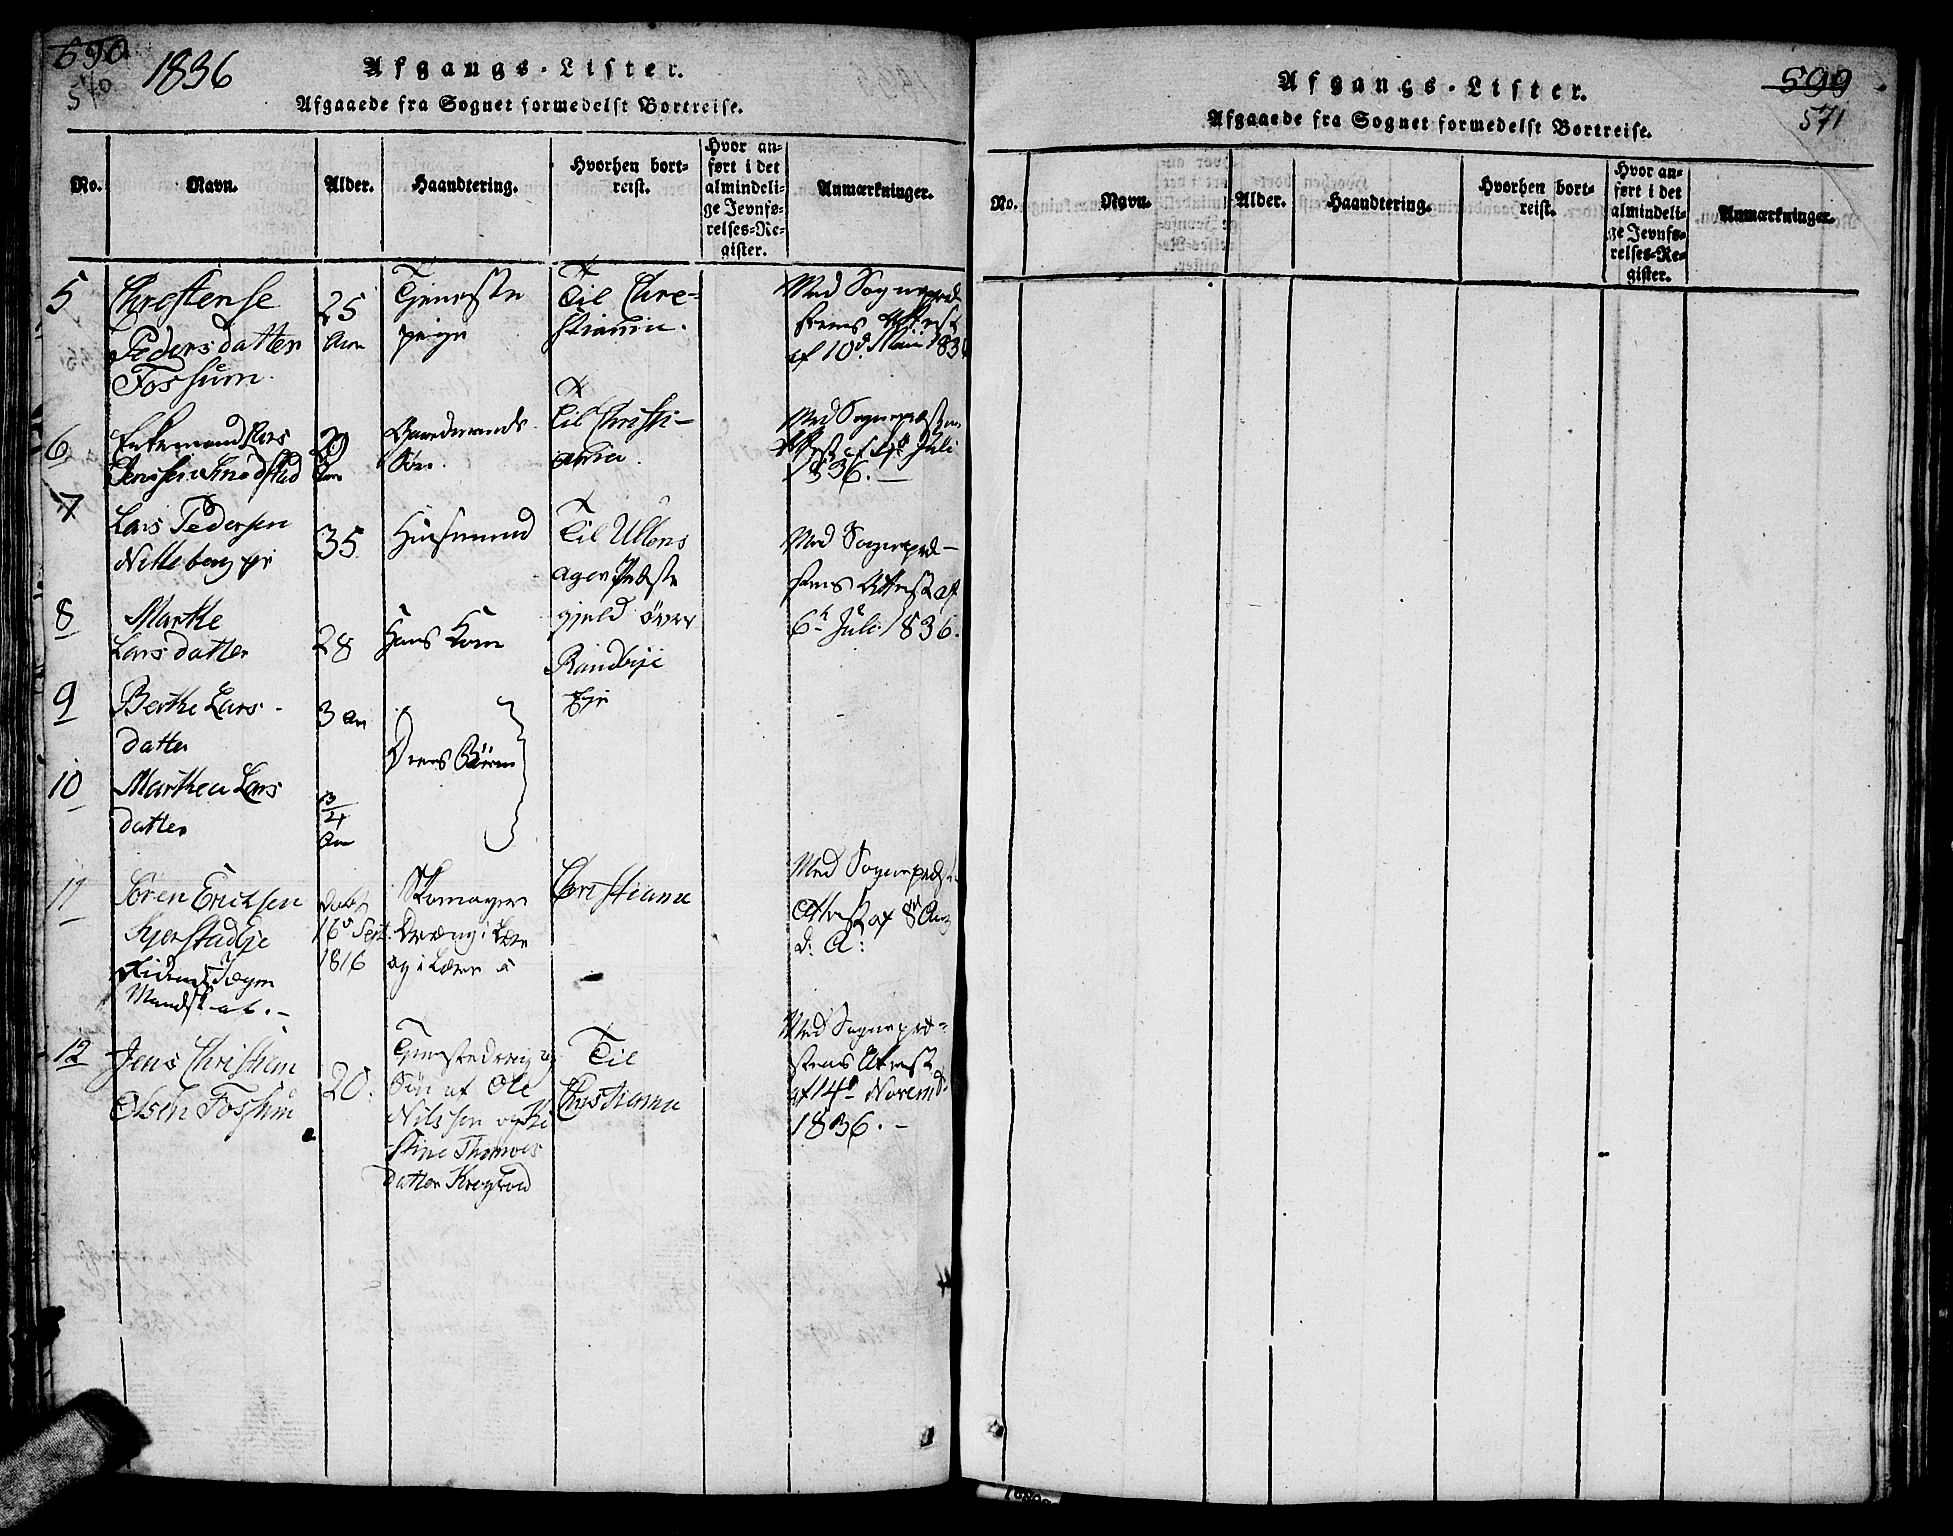 590
570
1836
Afgangs-Lister.
Afgaaede fra Sognet formedelst Bortreise.
No.
Navn.
Alder.
Haandtering.
Hvorhen bort-
reist.
Hvor an-
ført i det
almindeli-
ge Jevnfø-
relses-Re-
gister.
Anmærkninger.
5
Chrestense
Pedersdatter
Fossum.
25
Aar
Tjeneste
pige
Til Chre-
stiania.
Med Sognepræ-
stens Attest
af 10d Mai 1836
6
Enkemand Lars
Jenssen Smedstad
29
Aar
Gaardmands
Søn.
Til Christi-
ania.
Med Sognepræstens
Attest af Juli
1836.
7
Lars Pedersen
Nitteberg eje
35
Huusmand
Til Ullens
ager Præste
gjeld øvre
Randbye
Eje
Med Sognepræ-
stens Attest af
6te Juli 1836.
8
Marthe
Larsdatter
28
Hans Kone
9
Berthe Lars-
datter
3 Aar
Deres Børn
10
Marthea Lars
datter
3/4
Aar
11
Søren Ericksen
Kjerstad Eje
Mandskab.
Døbt
16d Sept.
1816
Skomager
Dreng i Lære
Christiania
Med Sognepræst.
Attest af 8d Aug
d. A.
12
Jens Christian
Olsen Fossum
20.
Tjenestedreng og
Søn af Ole
Nilssen og Ki
stine Thomes
datter Krogrud
Til
Christiania
Med Sognepræ-
stens Attest
af 14d Novemb.
1836.
599
571
Afgangs-Lister.
Afgaaede fra Sognet formedelst Bortreise.
No.
Navn.
Alder.
Haandtering.
Hvorhen bort-
reist.
Hvor an-
ført i det
almindeli-
ge Jevnfø-
relses-Re-
gister.
Anmærkninger.